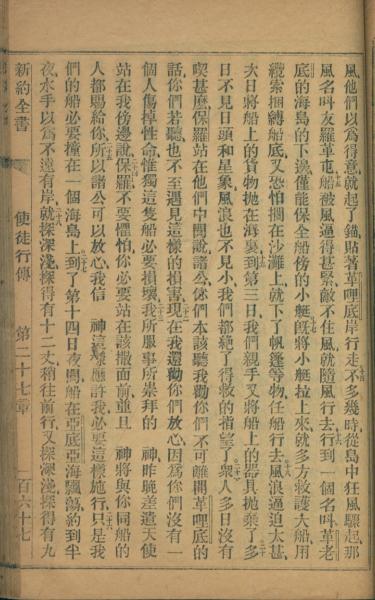 風、他們以爲得意、就起了錨、貼著革哩底岸行走、不多幾時、從島中狂風驟起、那
風名叫友羅革屯、船被風逼得甚緊、敵不住風、就隨風行去、行到一個名叫革老
底的海島的下邊、僅能保全船傍的小艇、旣將小艇拉上來、就多方救護大船、用
纜索捆縛船底、又恐怕擱在沙灘上、就下了帆篷等物、任船行去、風浪逼迫太甚、
次日將船上的貨物抛在海裏、到第三日、我們親手又將船上的器具抛棄了、多
日不見日頭和星象、風浪也不見小、我們都絕了得救的指望了、衆人多日沒有
喫甚麼、保羅站在他們中間說、諸公、你們本該聽我勸、你們不可離開革哩底的
話、你們若聽、也不至遇見這樣的損害、現在我還勸你們放心、因爲你們沒有一
個人傷掉性命、惟獨這隻船必要損壞、我所服事所崇拜的　神、昨晚差遣天使
站在我傍邊說、保羅、不要懼怕、你必要站在該撒面前、並且　神將與你同船的
人都賜給你、所以諸公可以放心、我信　神這樣應許我、必要這樣施行、只是我
們的船必要撞在一個海島上、到了第十四日夜間、船在亞底亞海飄蕩、約到半
夜、水手以爲不遠有岸、就探深淺、探得有十二丈、稍往前行、又探深淺、探得有九
新約全書　使徒行傳　第二十七章　百六十七